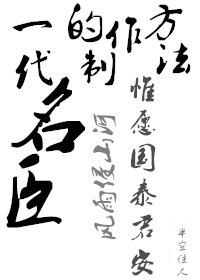 一代
名臣
的制
作
方法
风雨侵山河
惟愿国泰君安
半空佳人